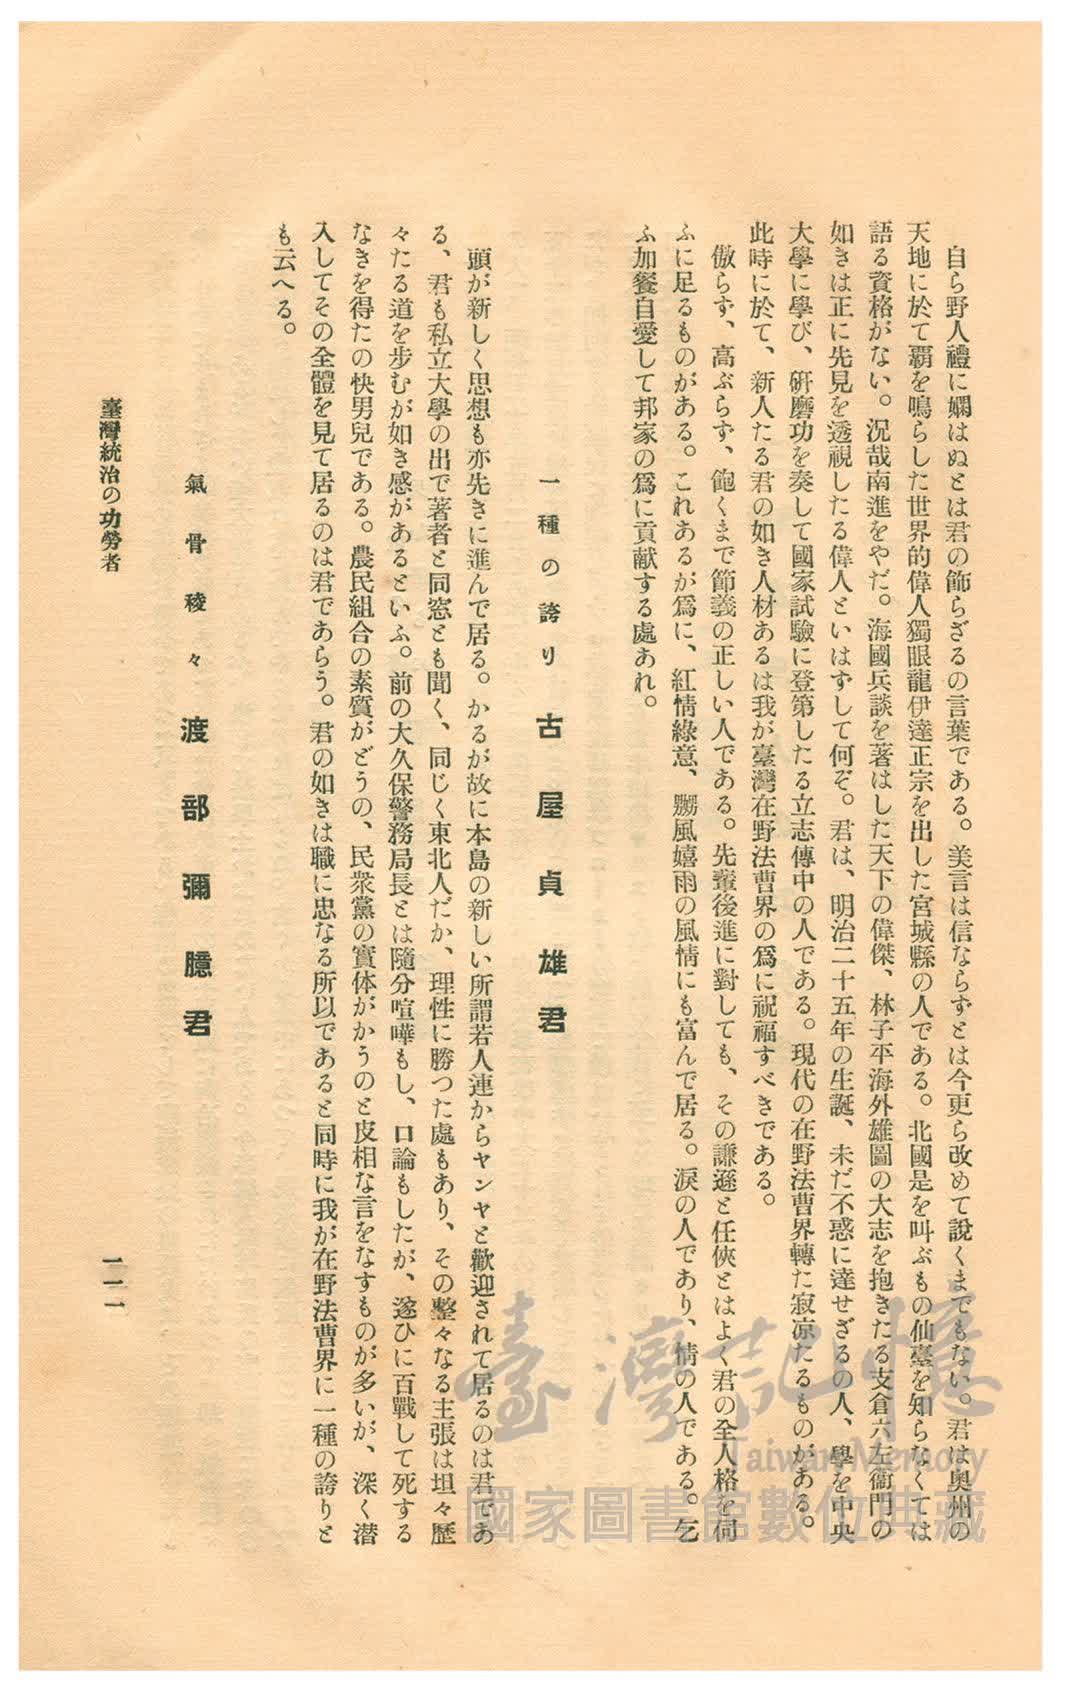 自ら野人禮に嫻はぬとは君の飾らざるの言葉である。美言は信ならずとは今更ら改めて說くまでもない。君は奥州の
天地に於て覇を鳴らした世界的偉人獨眼龍伊達正宗を出した宮城縣の人である。北國是を叫ぶもの仙臺を知らなくては
語る資格がない。況哉南進をやだ。海國兵談を著はした天下の偉傑、林子平海外雄圖の大志を抱きたる支倉六左衞門の
如きは正に先見を透視したる偉人といはずして何ぞ。君は、明治二十五年の生誕、未だ不惑に達せざるの人、學を中央
大學に學び、硏磨功を奏して國家試驗に登第したる立志傳中の人である。現代の在野法曹界轉た寂凉たるものがある。
此時に於て、新人たる君の如き人材あるは我が臺灣在野法曹界の爲に祝福すべきである。
傲らず、高ぶらず、飽くまで節義の正しい人である。先輩後進に對しても、その謙遜と任俠とはよく君の全人格を伺
ふに足るものがある。これあるが爲に、紅情綠意、嬲風嬉雨の風情にも富んで居る。淚の人であり、情の人である。乞
ふ加餐自愛して邦家の爲に貢献する處あれ。
一種の誇り 古屋貞雄君
頭が新しく思想も亦先きに進んで居る。かるが故に本島の新しい所謂若人連からヤンヤと歡迎されて居るのは君であ
る、君も私立大學の出で著者と同窓とも聞く、同じく東北人だか、理性に勝つた處もあり、その整々なる主張は坦々歷
々たる道を步むが如き感があるといふ。前の大久保警務局長とは隨分喧嘩もし、口論もしたが、遂ひに百戰して死する
なきを得たの快男兒である。農民組合の素質がどうの、民衆黨の實体がかうのと皮相な言をなすものが多いが、深く潜
入してその全體を見て居るのは君であらう。君の如きは職に忠なる所以であると同時に我が在野法曹界に一種の誇りと
も云へる。
氣骨稜々 渡部彌臆君
臺灣統治の功勞者
一一一
臺灣記憶
Taiwan Memory
國家圖書館數位典藏